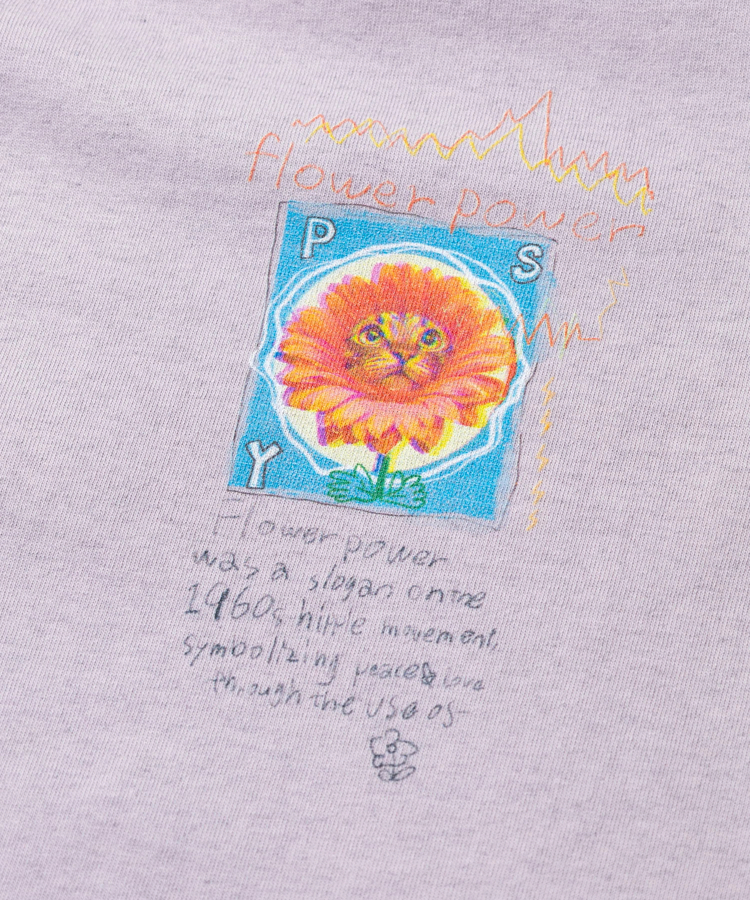 flower power
P S
Y
Flower power
was a slogan on the
1960s hippie movement,
symbolizing peace & love
through the use of